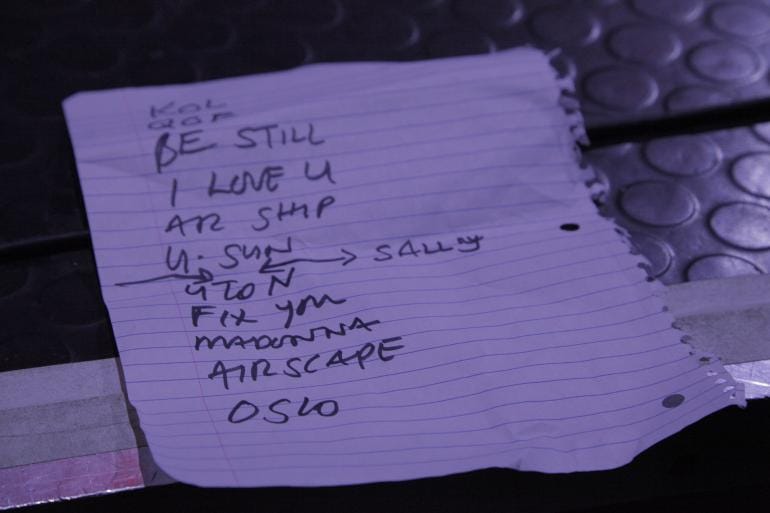 KOL
QOF
BE STILL
I LOVE U
AIR SHIP
U. SUN SALLY
4 TO N
FIX YOU
MADONNA
AIRSCAPE
OSLO